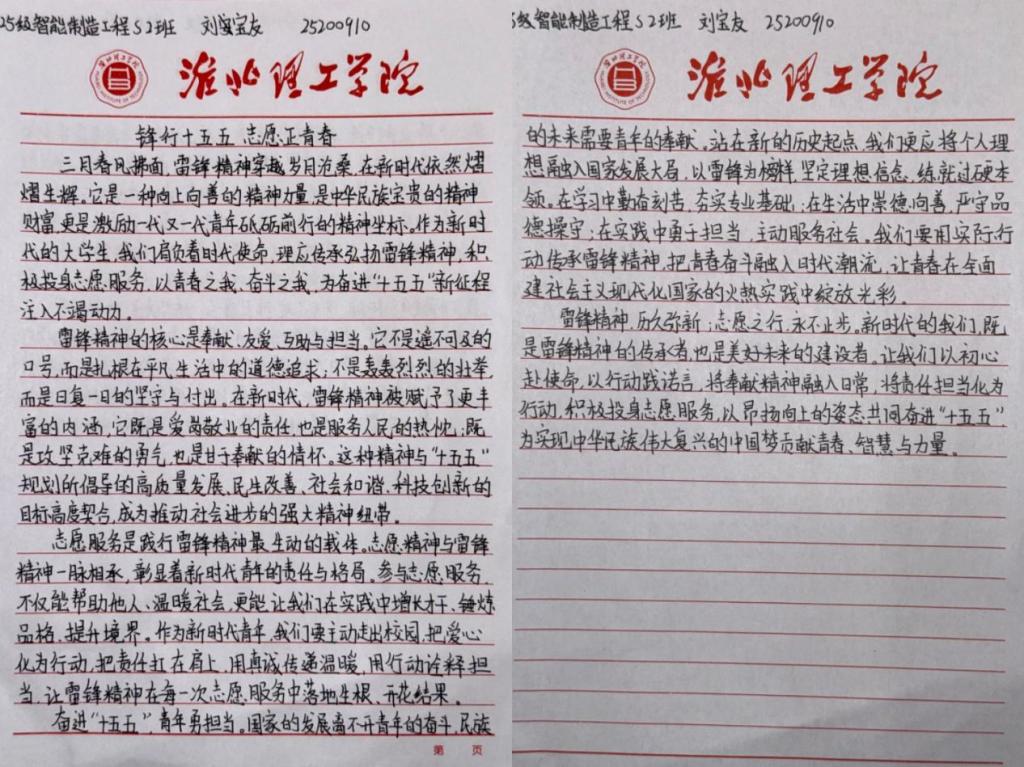 25级智能制造工程S2班 刘宝友 25200910
淮北理工学院
锋行十五五 志愿正青春
三月春风拂面,雷锋精神穿越岁月沧桑,在新时代依然熠
熠生辉。它是一种向上向善的精神力量,是中华民族宝贵的精神
财富,更是激励一代又一代青年砥砺前行的精神坐标。作为新时
代的大学生,我们肩负着时代使命,理应传承弘扬雷锋精神,积
极投身志愿服务,以青春之我、奋斗之我,为奋进“十五五”新征程
注入不竭动力。
雷锋精神的核心是奉献、友爱、互助与担当,它不是遥不可及的
口号,而是扎根在平凡生活中的道德追求;不是轰轰烈烈的壮举,
而是日复一日的坚守与付出。在新时代,雷锋精神被赋予了更丰
富的内涵,它既是爱岗敬业的责任,也是服务人民的热忱;既
是攻坚克难的勇气,也是甘于奉献的情怀。这种精神与“十五五”
规划所倡导的高质量发展、民生改善、社会和谐、科技创新的
目标高度契合,成为推动社会进步的强大精神纽带。
志愿服务是践行雷锋精神最生动的载体。志愿精神与雷锋
精神一脉相承,彰显着新时代青年的责任与格局。参与志愿服务,
不仅能帮助他人、温暖社会,更能让我们在实践中增长才干、锤炼
品格、提升境界。作为新时代青年,我们要主动走出校园,把爱心
化为行动,把责任扛在肩上,用真诚传递温暖,用行动诠释担
当,让雷锋精神在每一次志愿服务中落地生根、开花结果。
奋进“十五五”,青年勇担当。国家的发展离不开青年的奋斗,民族
第 页
25级智能制造工程S2班 刘宝友 25200910
淮北理工学院
的未来需要青年的奉献。站在新的历史起点,我们更应将个人理
想融入国家发展大局,以雷锋为榜样,坚定理想信念,练就过硬本
领。在学习中勤奋刻苦,夯实专业基础;在生活中崇德向善,严守品
德操守;在实践中勇于担当,主动服务社会。我们要用实际行
动传承雷锋精神,把青春奋斗融入时代潮流,让青春在全面
建社会主义现代化国家的火热实践中绽放光彩。
雷锋精神,历久弥新;志愿之行,永不止步。新时代的我们,既
是雷锋精神的传承者,也是美好未来的建设者。让我们以初心
赴使命,以行动践诺言,将奉献精神融入日常,将责任担当化为
行动,积极投身志愿服务,以昂扬向上的姿态共同奋进“十五五”,
为实现中华民族伟大复兴的中国梦贡献青春、智慧与力量。